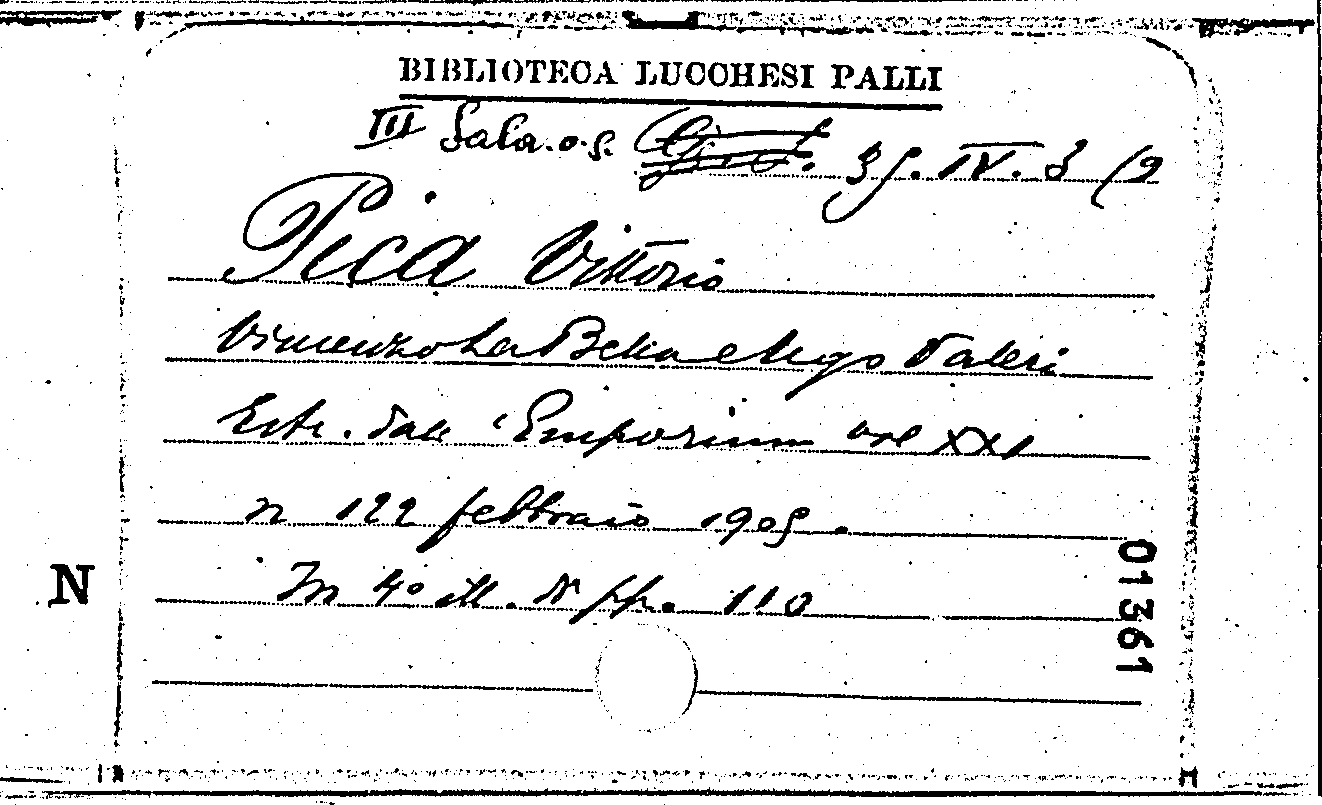 BIBLIOTECA LUCCHESI PALLI
III Sala. o. g. 35. IV. 3 (9
Pica Vittorio
Vincenzo La Bella e Ugo Valeri
Estr. dall' Emporium vol XXI
n 122 febbraio 1905.
In 4° ill. di pp. 110
N
01361